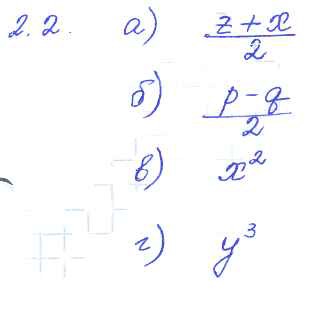 2.2. а) (z + x)/2
б) (p - q)/2
в) x²
г) y³